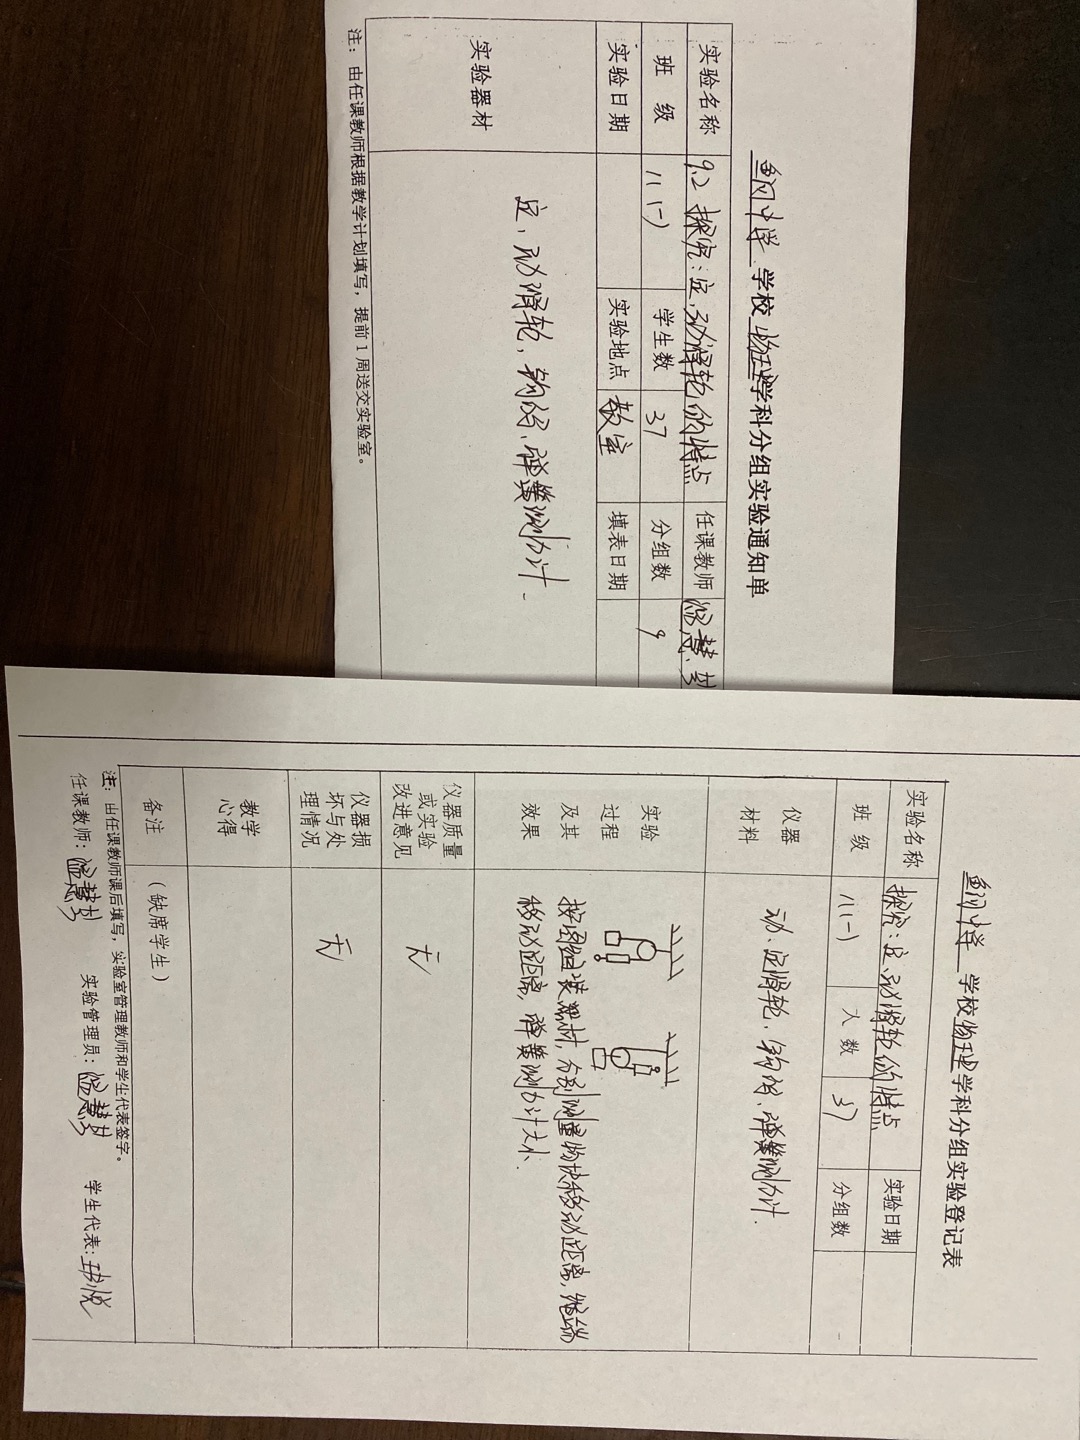 中学 学校 物理 学科分组实验通知单
实验名称 9.2 探究:定、动滑轮的特点 任课教师
班 级 八(一) 学生数 37 分组数 9
实验日期 实验地点 教室 填表日期
实验器材 定、动滑轮、钩码、弹簧测力计.
注:由任课教师根据教学计划填写,提前1周送交实验室。
中学 学校 物理 学科分组实验登记表
实验名称 探究:定、动滑轮的特点 实验日期
班 级 八(一) 人数 37 分组数
仪器
材料
动、定滑轮、钩码、弹簧测力计.
实验
过程
及其
效果
按图组装器材,分别测量物块移动距离,绳端
移动距离,弹簧测力计大小.
仪器质量
或实验
改进意见
无
仪器损
坏与处
理情况
无
教学
心得
备注 (缺席学生)
注:由任课教师课后填写,实验室管理教师和学生代表签字。
任课教师: 实验管理员: 学生代表: